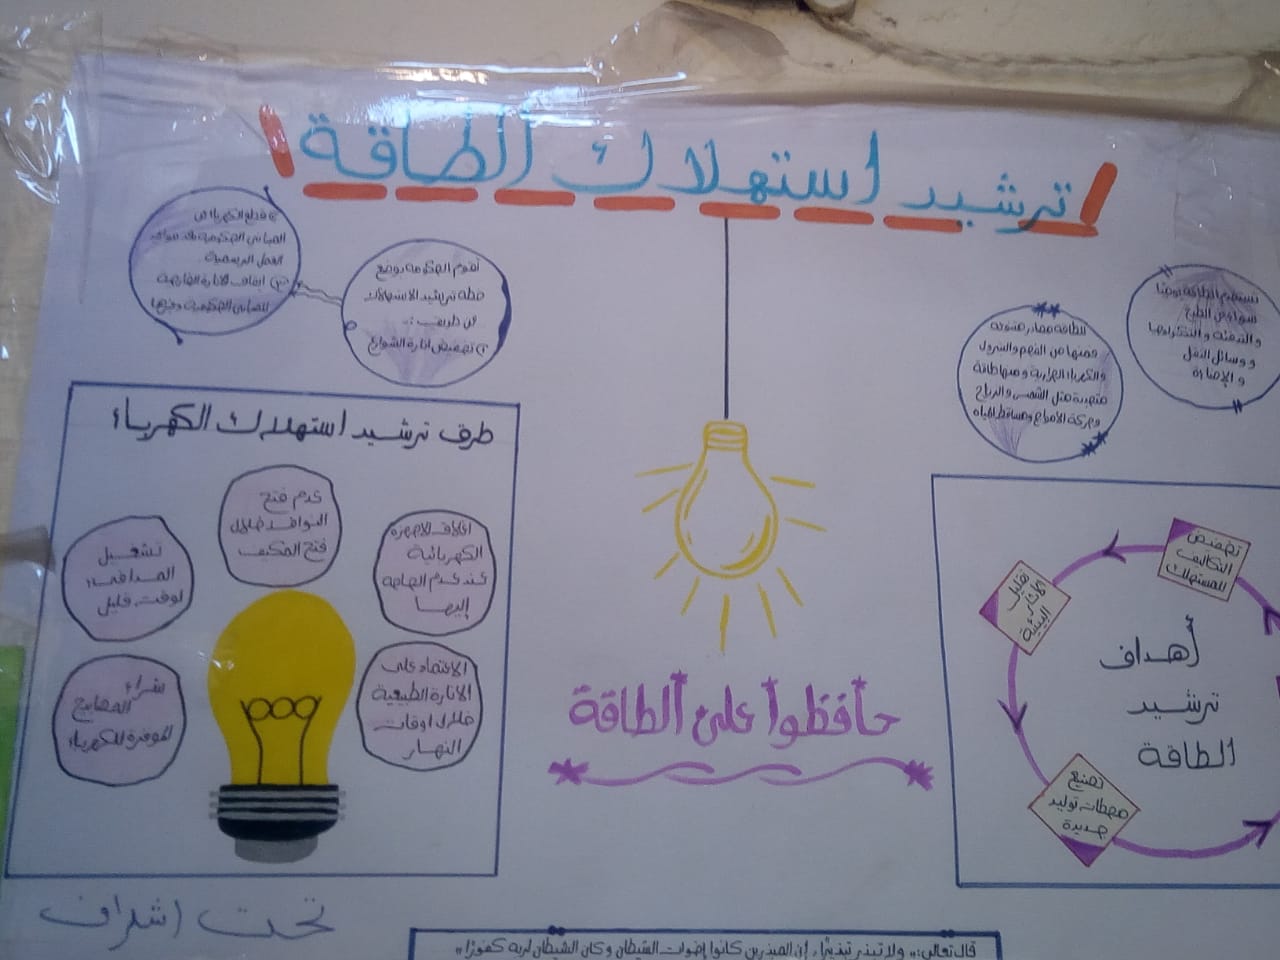 ترشيد استهلاك الطاقة
نستخدم الطاقة يوميًا
سواء في الطبخ
والتدفئة و
ووسائل النقل
والإضاءة
للطاقة مصادر متنوعة
فمنها من الفحم والبترول
والكهرباء الحرارية ومنها طاقة
متجددة مثل الشمس والرياح
وحركة الأمواج ومساقط المياه
تقوم الحكومة بوضع
خطة ترشيد الاستهلاك
عن طريق :-
١) تخفيض انارة الشوارع
٢) قطع الكهرباء في
المباني الحكومية بعد مواعيد
العمل الرسمية
٣) ايقاف الانارة الخارجية
للمباني الحكومية
طرق ترشيد استهلاك الكهرباء
عدم فتح
النوافذ خلال
فتح المكيف
اغلاق الاجهزة
الكهربائية
عند عدم الحاجة
إليها
تشغيل
المدافئ
لوقت قليل
الاعتماد على
الانارة الطبيعية
خلال اوقات
النهار
شراء
المصابيح
الموفرة للكهرباء
حافظوا على الطاقة
أهداف
ترشيد
الطاقة
تخفيض
التكاليف
للمستهلك
تقليل
الآثار
البيئية
تصنيع
محطات توليد
جديدة
تحت اشراف
قال تعالى: ،، ولا تبذر تبذيرًا، إن المبذرين كانوا إخوان الشيطان وكان الشيطان لربه كفورًا ،،